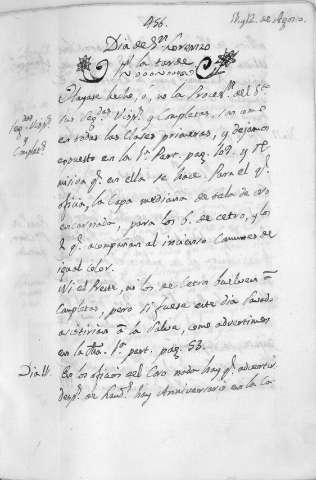 456.
11 y 12. de Agosto.
Dia de Sn. Lorenzo
pr. la tarde
Hayase hecho, ó, no la Procesn. del Sto.
seg.das Visps.
y
Complets.
sus seg.das Visps. y Completas, son como
en todas las Clases primeras, y dejamos
expuesto en la 1ª. Part. pag. 109. y
mision qe. en ella se hace. Para el qe.
oficia, la Capa mediana de tela de oro
encarnado, para los 6. de cetro, y los
2 qe. acompañan al incienso Comunes de
igual color.
Ni el Preste, ni los de Cetro buelven á
Completas, pero si fuese este dia Sabado
asistirian á la Salve, como advertimos
en la dha. 1ª. part. pag. 53.
Dia 11.
En los oficios del Coro nada hay qe. advertir
desps. de hay Anniversario en la Ca-